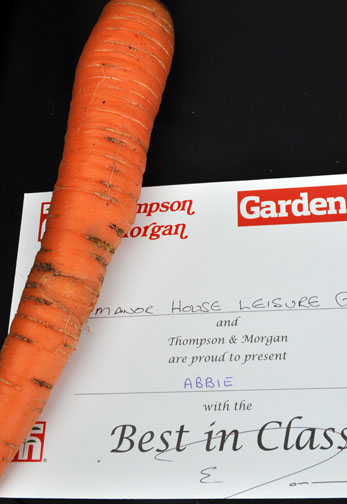 mpson
organ
Garden
MANOR HOUSE LEISURE
and
Thompson & Morgan
are proud to present
ABBIE
with the
Best in Clas